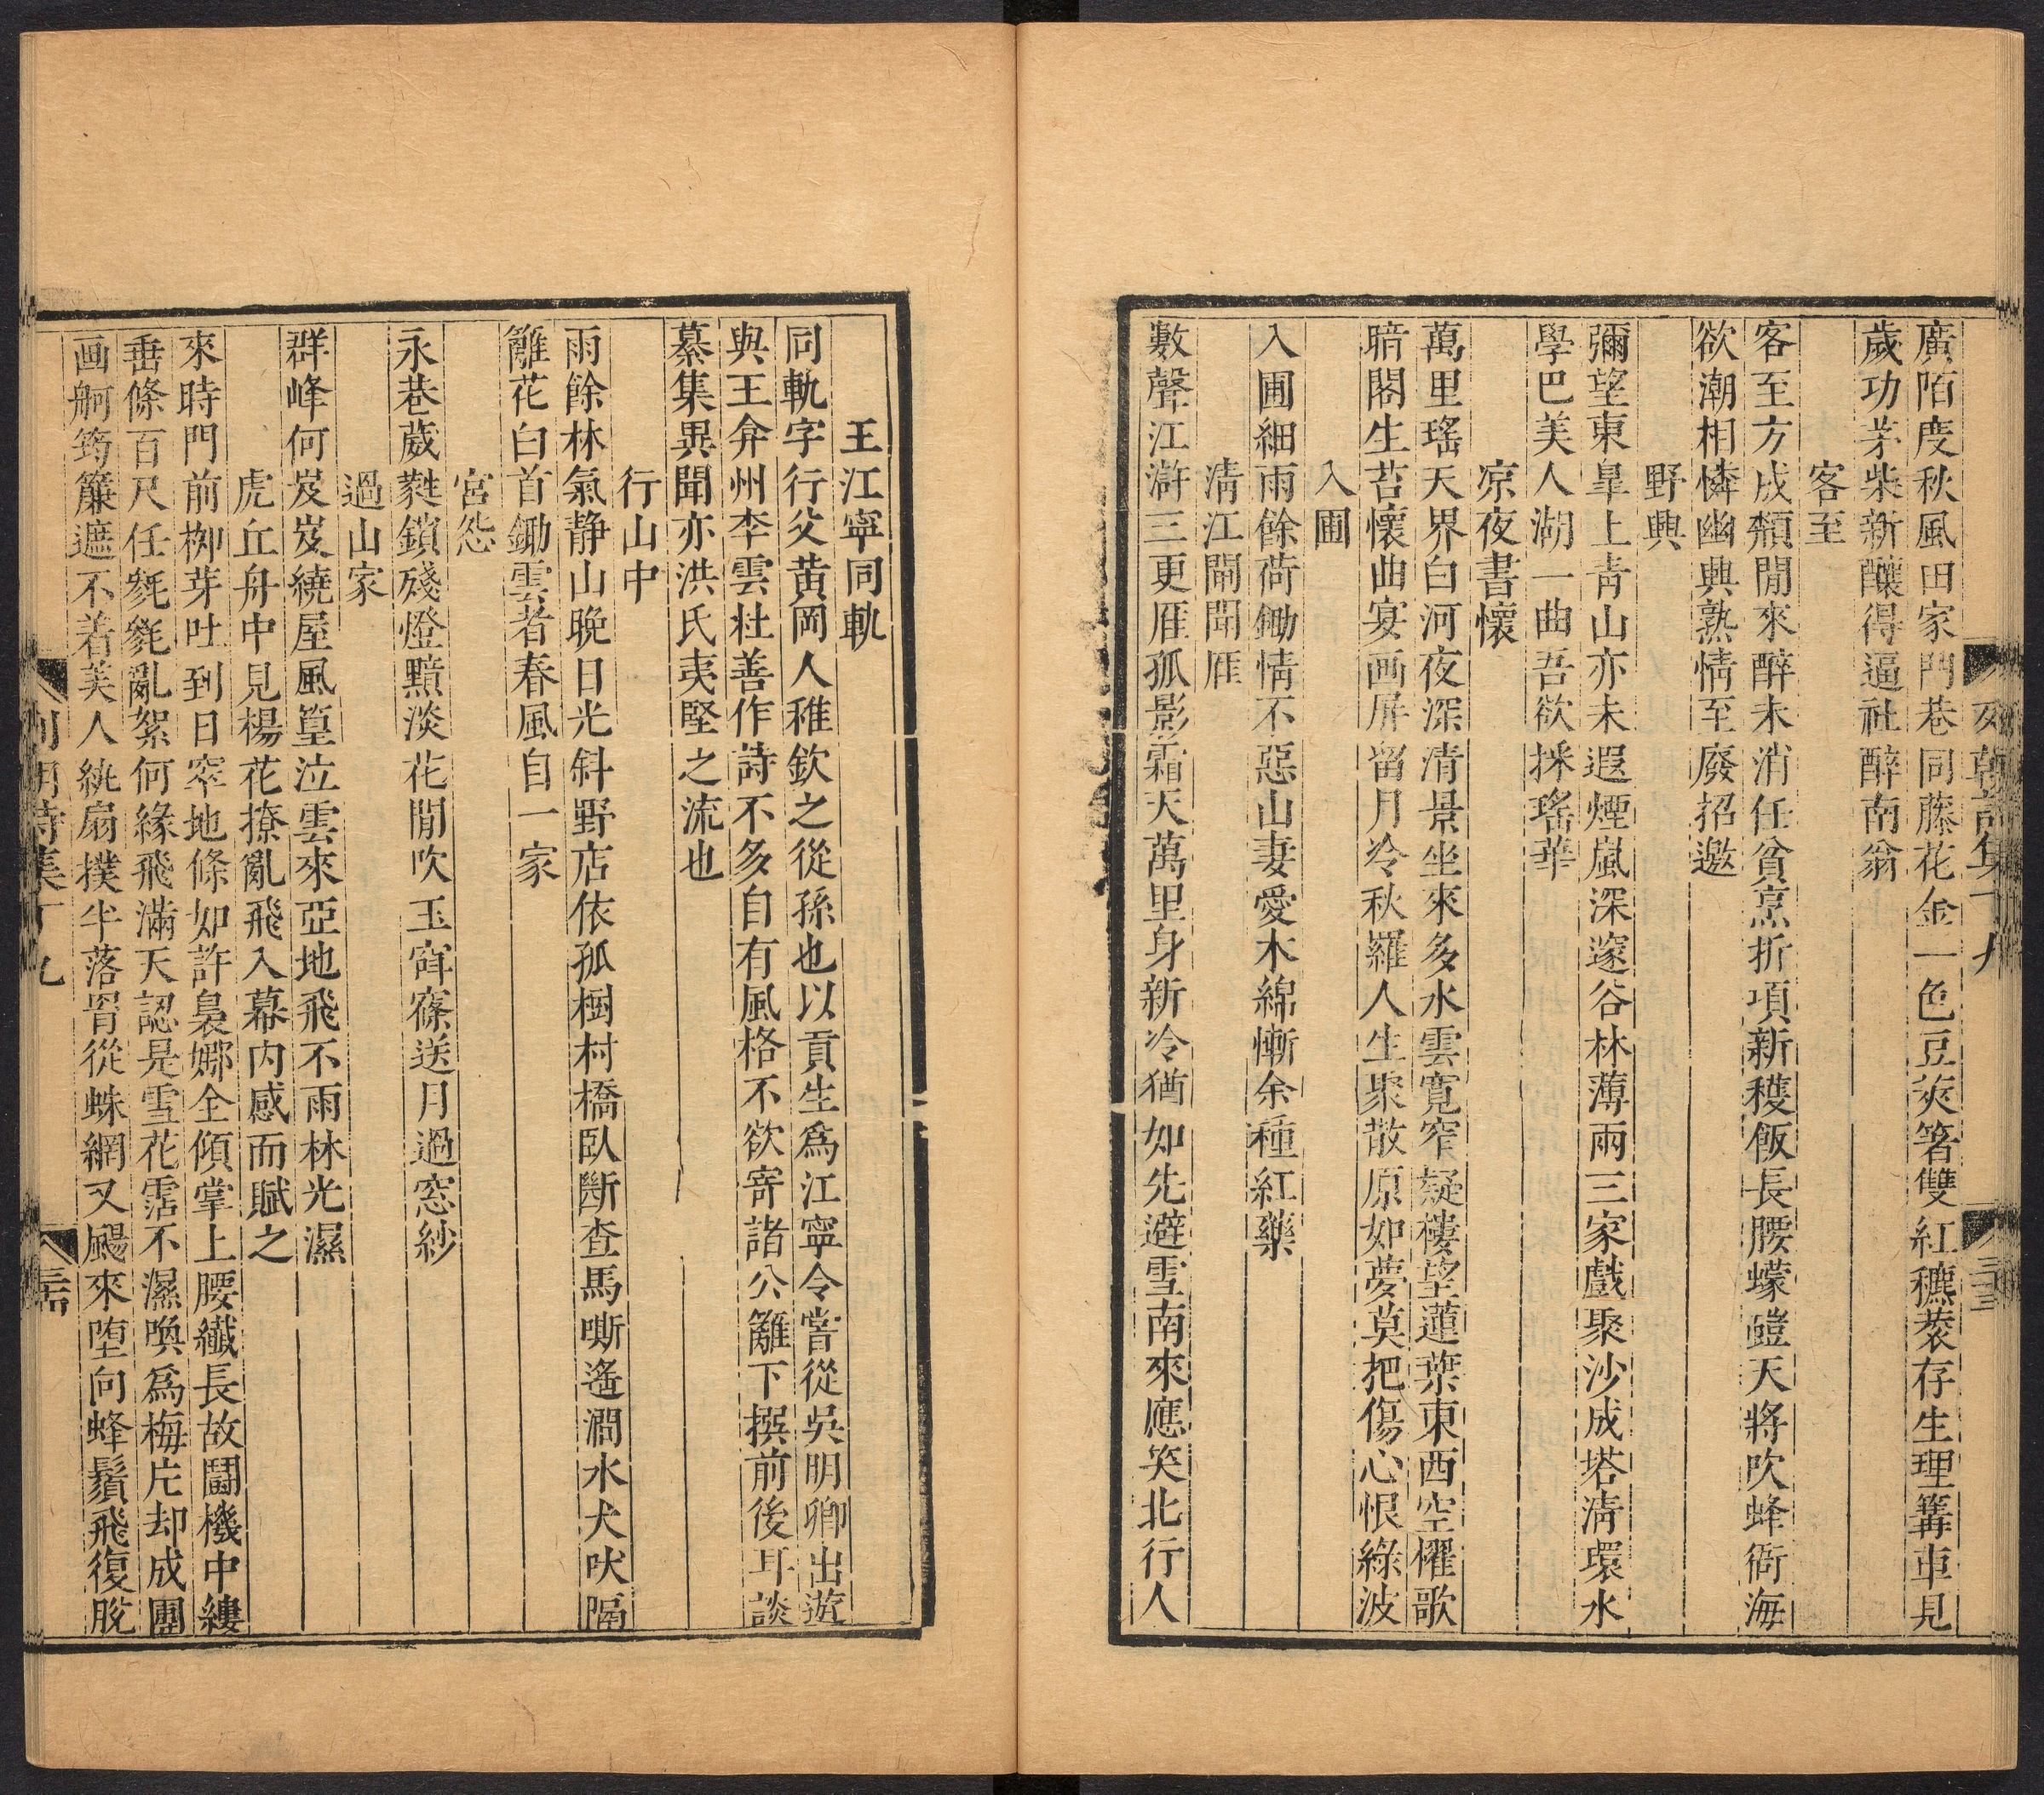 廣陌度秋風田家門巷同藤花金一色豆莢箸雙紅穮蔉存生理篝車見
歲功茅柴新釀得逼社醉南翁
客至
客至方成頮閒來醉未消任貧烹折項新穫飯長腰蠓磑天將吹蜂衙海
欲潮相憐幽興熟情至廢招邀
野興
彌望東皐上青山亦未遐煙嵐深邃谷林薄兩三家戲聚沙成塔清環水
學巴美人湖一曲吾欲採瑤華
凉夜書懷
萬里瑤天界白河夜深清景坐來多水雲寬窄疑樓望蓮葉東西空櫂歌
暗閣生苔懷曲宴画屏留月冷秋羅人生聚散原如夢莫把傷心恨綠波
入圃
入圃細雨餘荷鋤情不惡山妻愛木綿慚余種紅藥
清江閘聞雁
數聲江滸三更雁孤影霜天萬里身新冷猶如先避雪南來應笑北行人
王江寧同軌
同軌字行父黄岡人稚欽之從孫也以貢生爲江寧令嘗從吳明卿出遊
與王弇州李雲杜善作詩不多自有風格不欲寄諸公籬下撰前後耳談
纂集異聞亦洪氏夷堅之流也
行山中
雨餘林氣静山晚日光斜野店依孤樹村橋臥斷查馬嘶遙澗水犬吠隔
籬花白首鋤雲者春風自一家
宮怨
永巷葳蕤鎖殘燈黯淡花閒吹玉窅篠送月過窓紗
過山家
群峰何岌岌繞屋風篁泣雲來亞地飛不雨林光濕
虎丘舟中見楊花撩亂飛入幕内感而賦之
來時門前栁芽吐到日窣地條如許裊娜全傾掌上腰纖長故鬪機中縷
垂條百尺任毿毿亂絮何緣飛滿天認是雪花霑不濕喚爲梅片却成團
画舸筠簾遮不着美人紈扇撲半落罥從蛛網又颺來墮向蜂鬚飛復脫